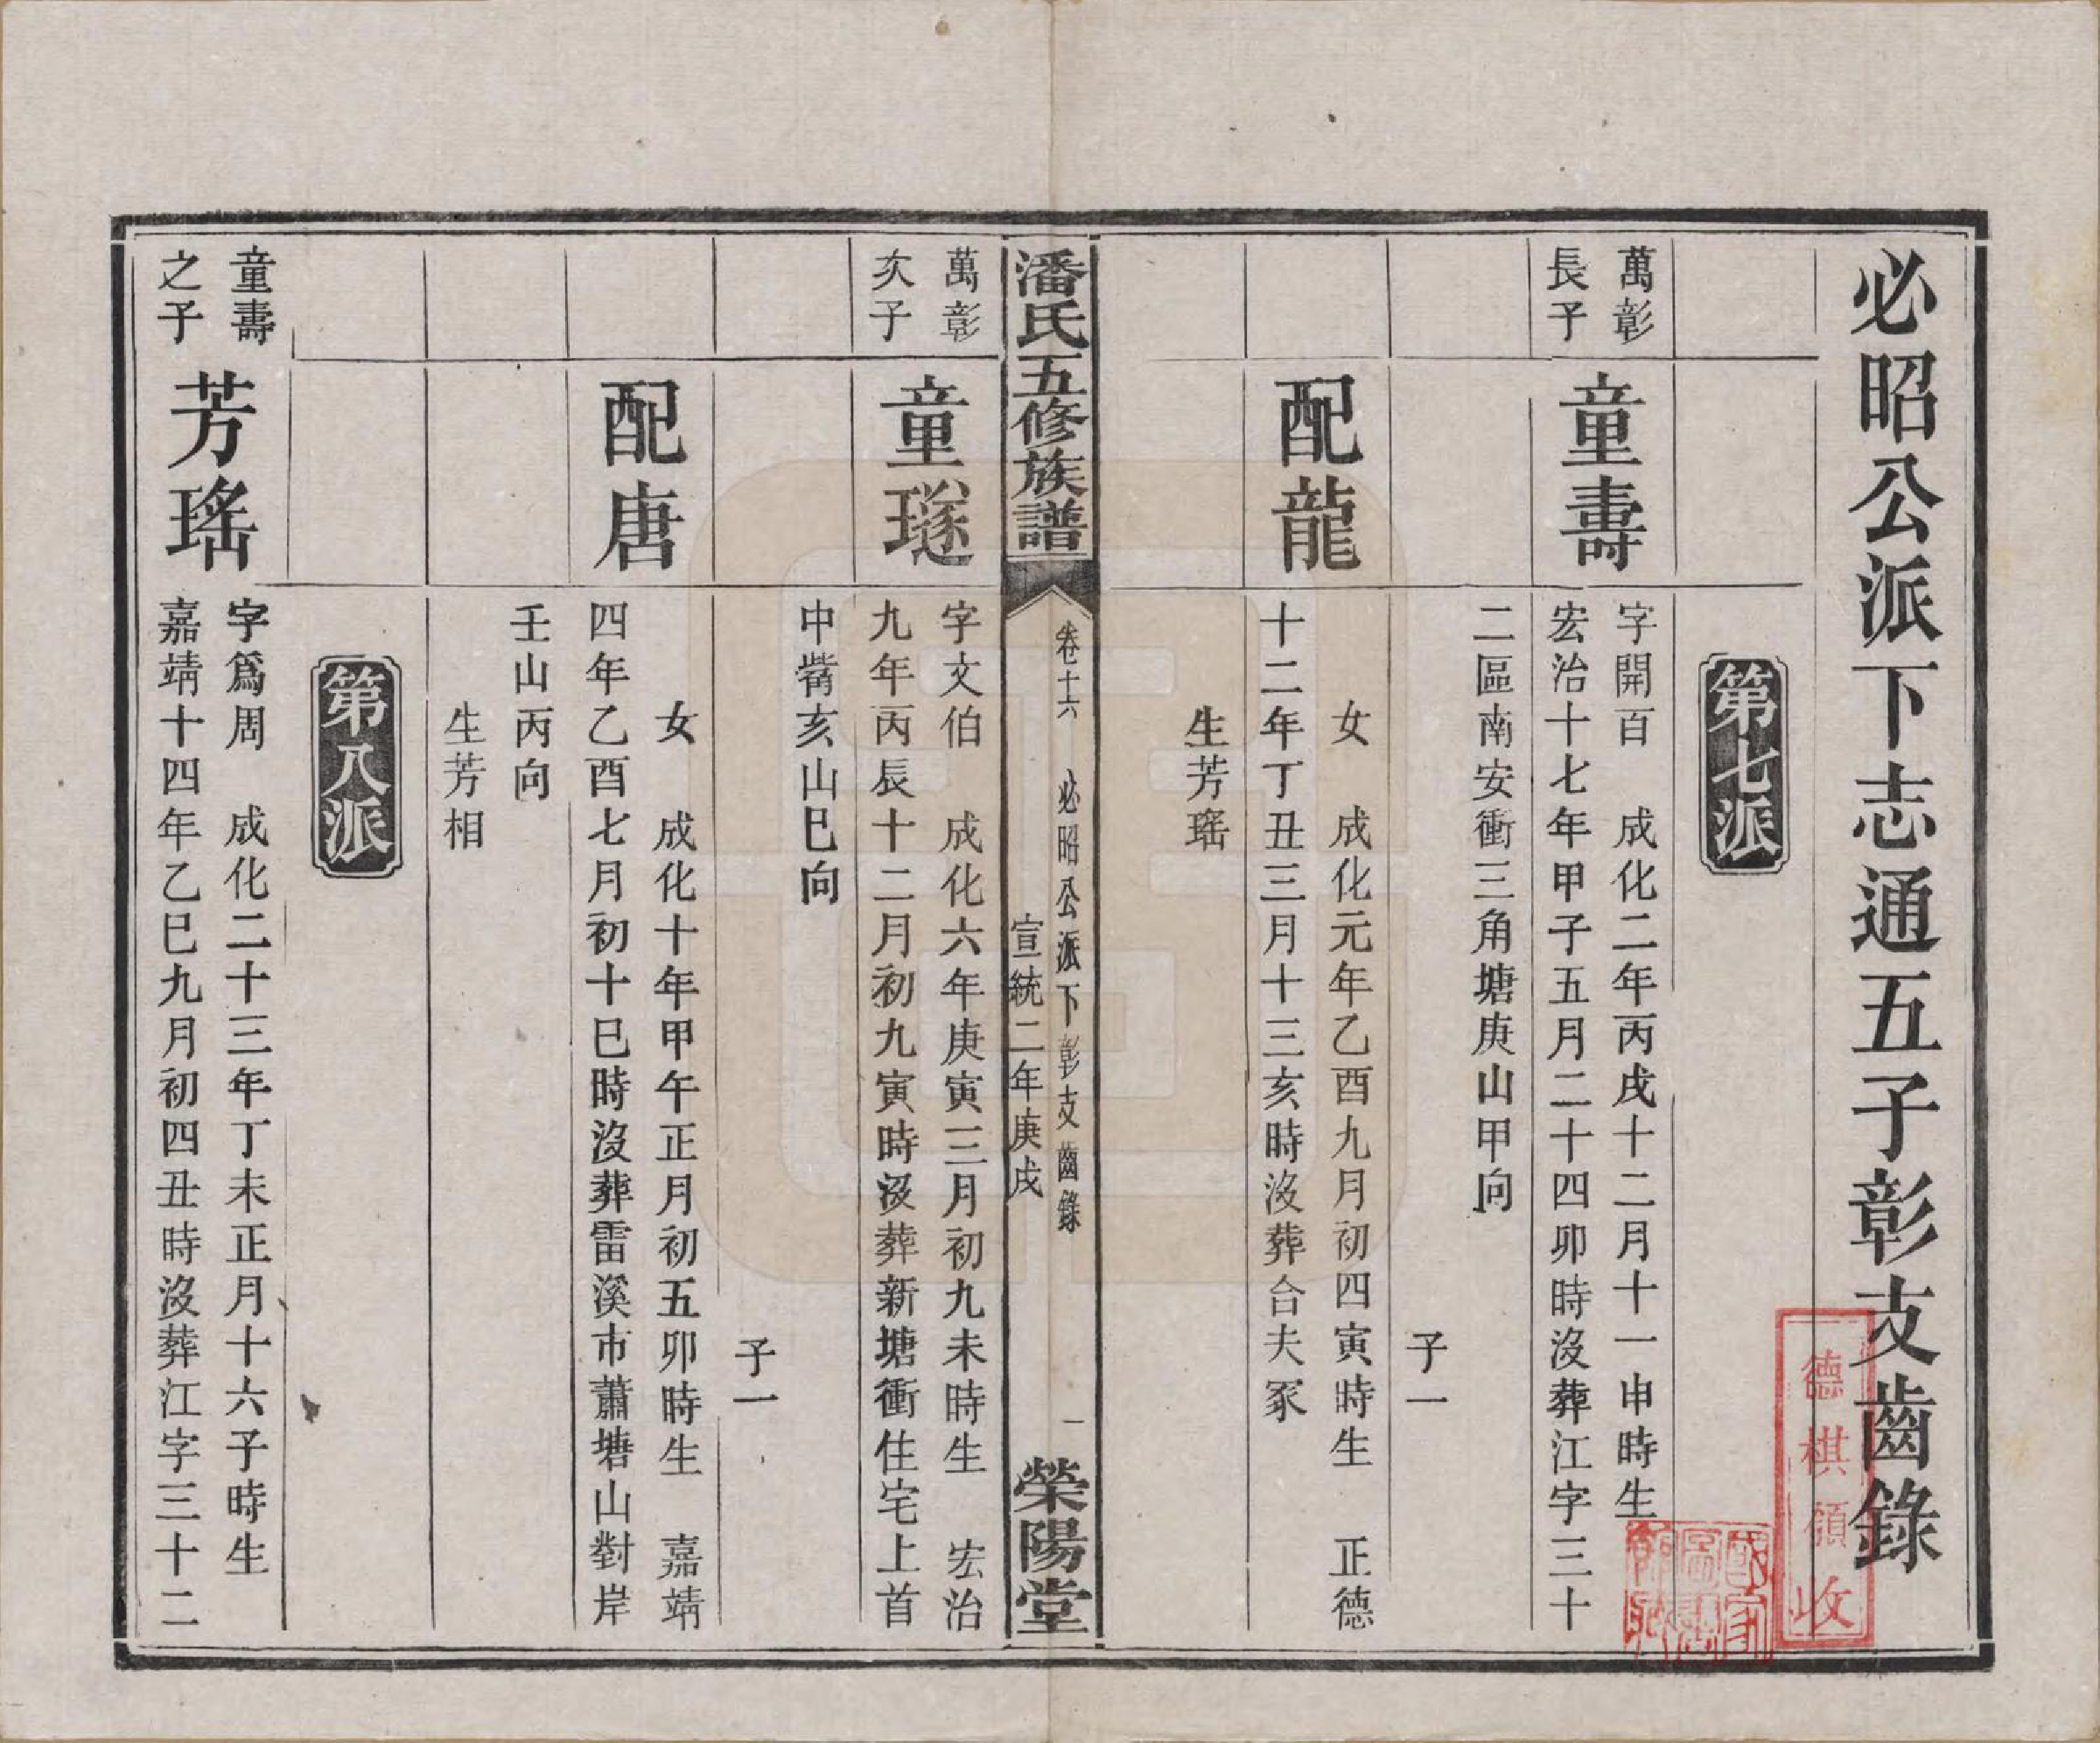 必昭公派下志通五子彰支齒錄
第七派
萬彰
長子
童壽
字開百　成化二年丙戌十二月十一申時生
宏治十七年甲子五月二十四卯時沒葬江字三十
二區南安衝三角塘庚山甲向
子一
配龍
女　成化元年乙酉九月初四寅時生　正德
十二年丁丑三月十三亥時沒葬合夫冢
生芳瑤
潘氏五修族譜
卷十六　必昭公派下彰支齒錄
宣統二年庚戌
一
榮陽堂
萬彰
次子
童璲
字文伯　成化六年庚寅三月初九未時生　宏治
九年丙辰十二月初九寅時沒葬新塘衝住宅上首
中嘴亥山巳向
子一
配唐
女　成化十年甲午正月初五卯時生　嘉靖
四年乙酉七月初十巳時沒葬雷溪市蕭塘山對岸
壬山丙向
生芳相
第八派
童壽
之子
芳瑤
字爲周　成化二十三年丁未正月十六子時生
嘉靖十四年乙巳九月初四丑時沒葬江字三十二
德棋領收